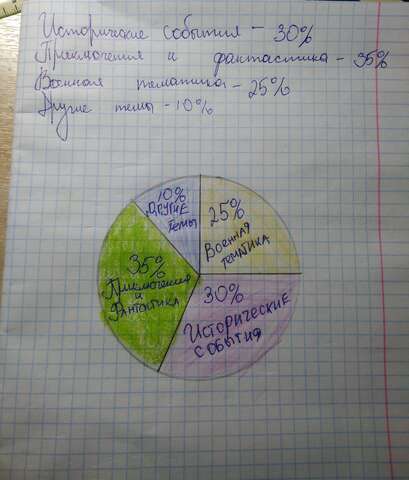 Исторические события - 30%
Приключения и фантастика - 35%
Военная тематика - 25%
Другие темы - 10%
10%
Другие
темы
25%
Военная
тематика
35%
Приключения
и
Фантастика
30%
Исторические
события